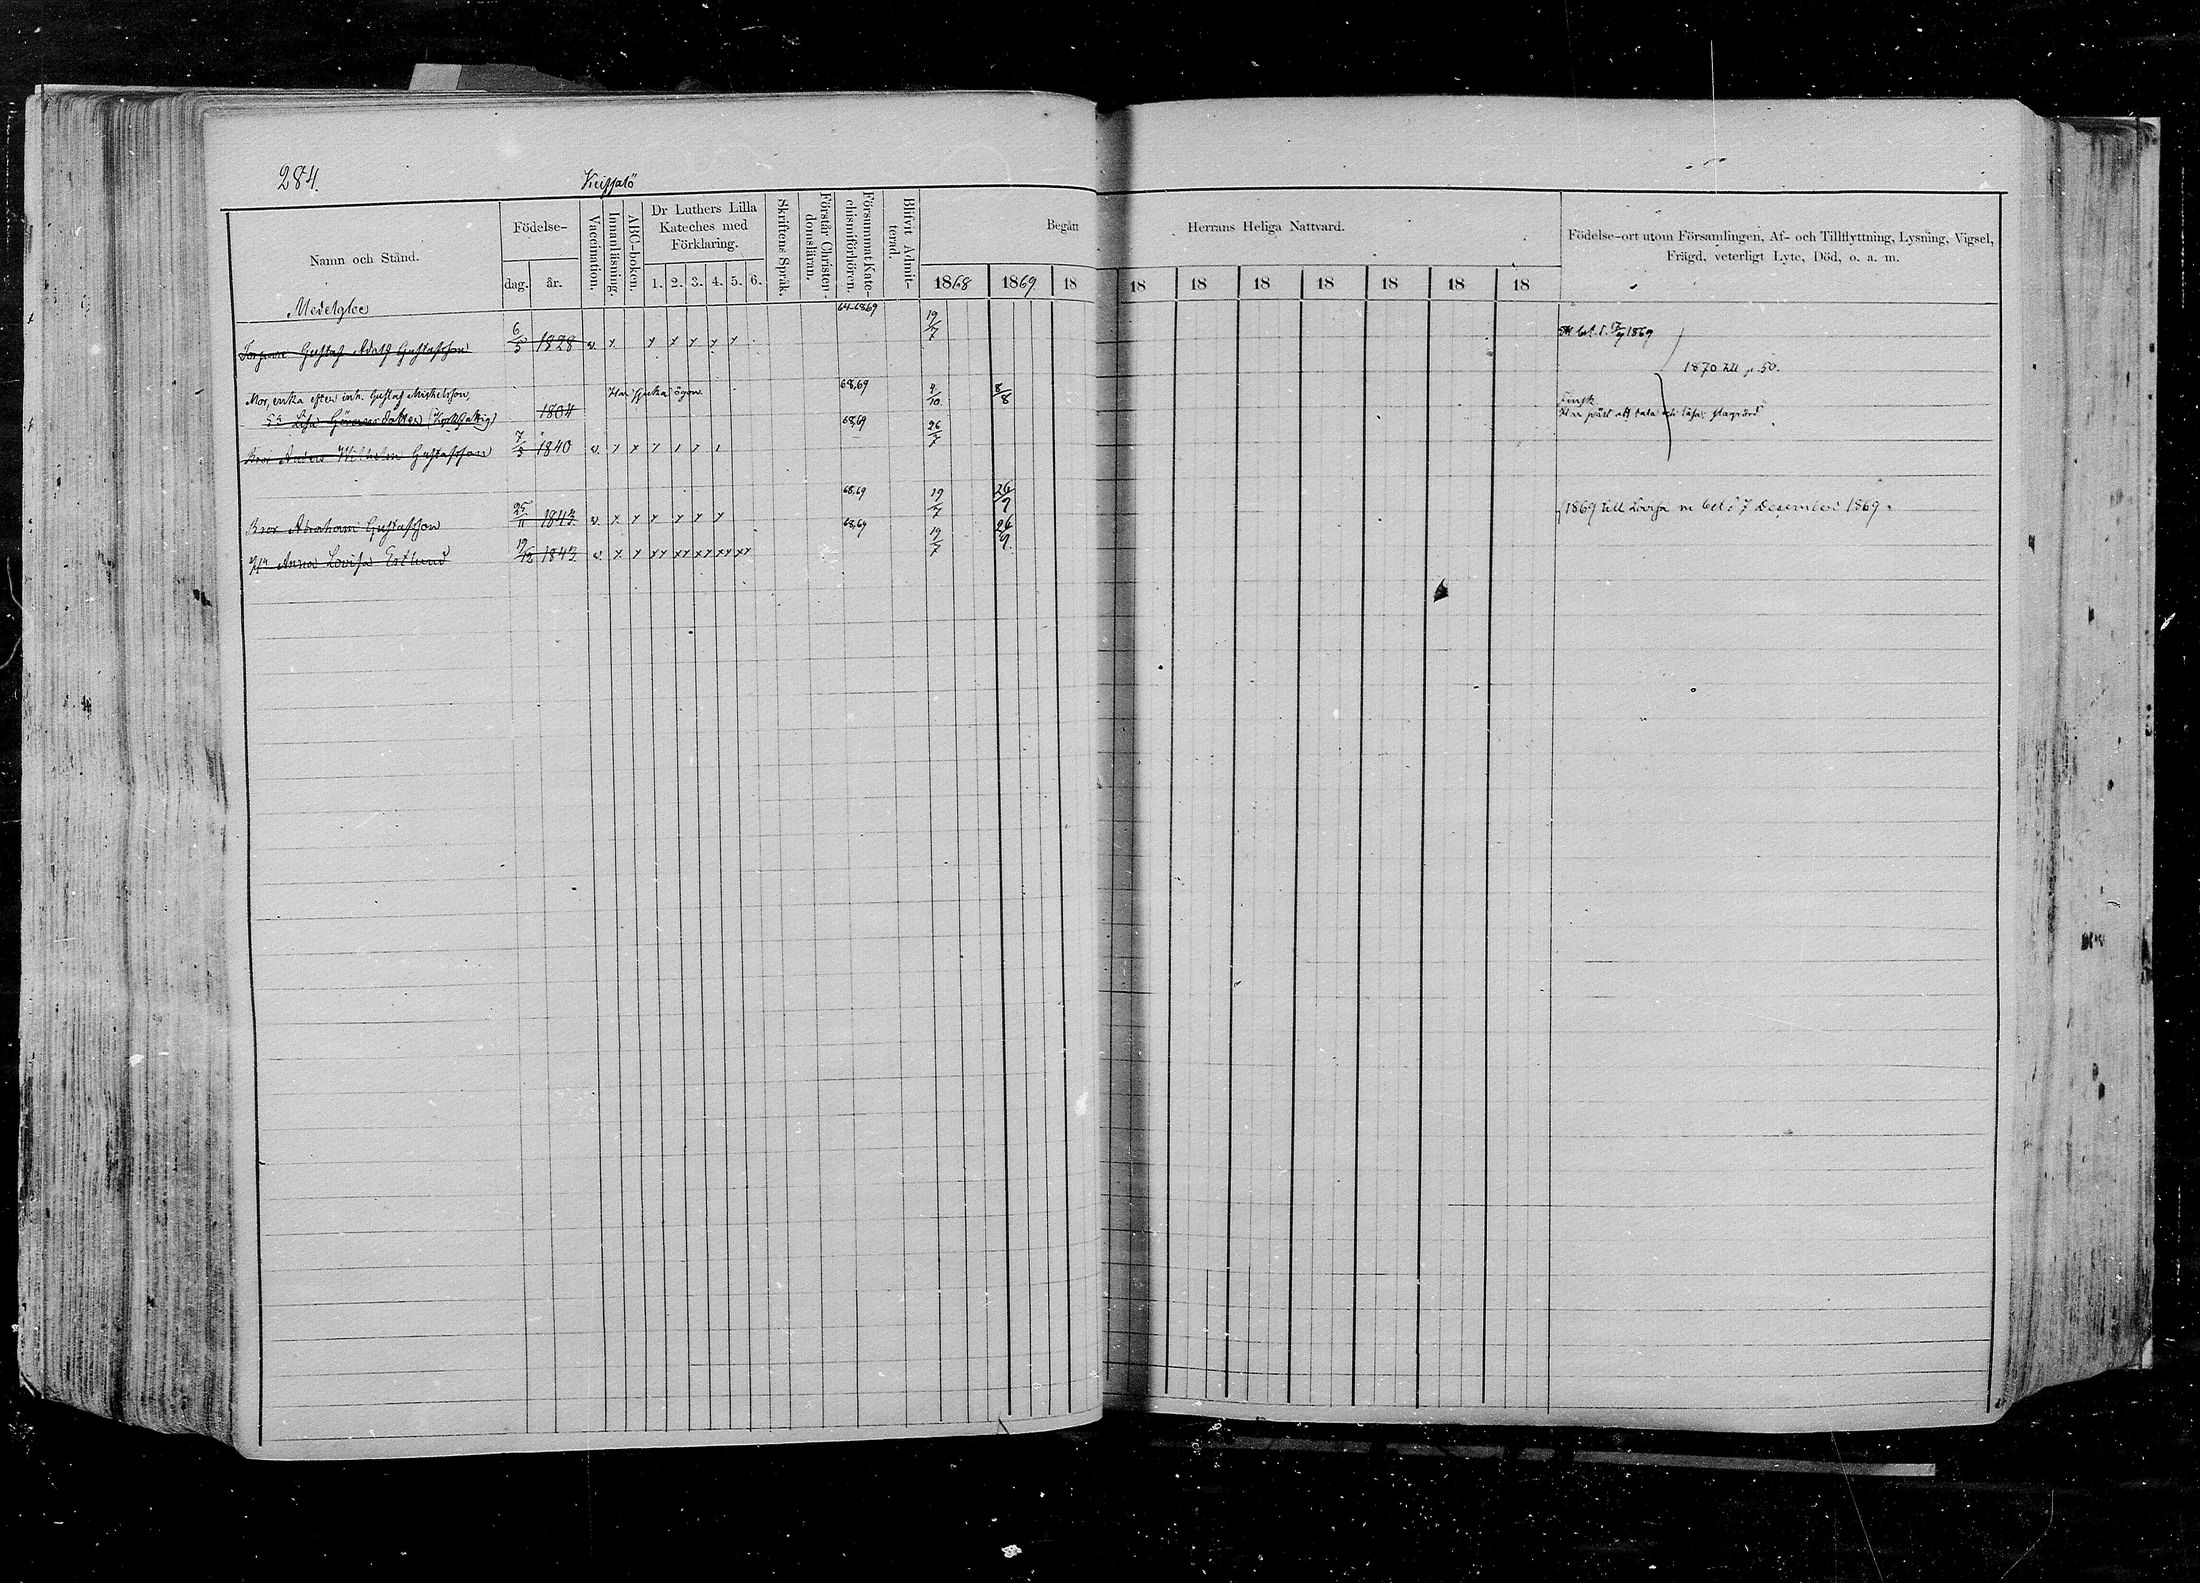 284.
Namn och Stånd.
Födelse-
dag. år.
Vaccination.
Innanläsning.
ABC-boken.
Dr Luthers Lilla
Kateches med
Förklaring.
1. 2. 3. 4. 5. 6.
Skriftens Språk.
Förstår Christen-
domsläran.
Försummat Kate-
chismiförhören.
Blifvit Admit-
terad.
Begått Herrans Heliga Nattvard.
1868 1869 18 18 18 18 18 18 18 18
Födelse-ort utom Församlingen, Af- och Tillflyttning, Lysning, Vigsel,
Frägd, veterligt Lyte, Död, o. a. m.
64-68.69 19/7
Gustaf Adolf Gustafsson 6/5 1828 v. x x x x x x
1869
1870 p 50.
Mor, enka efter inh. Gustaf Michelsson, Har sjuka ögon. 68,69 9/10 8/8
Lisa 1804
Finsk
Har svårt att tala och läsa;
68,69 26/7
Bror Anders Wilhelm Gustafsson 7/5 1840 v.
68,69 19/7 26/9
Bror Abraham Gustafsson 25/11 1843 v. x x x x x x
1869 till Lovisa m bet. 7 December 1869
68,69 19/7 26/9
Anna Lovisa Estlund 19/12 1843 v. x x xx xx xx xx xx